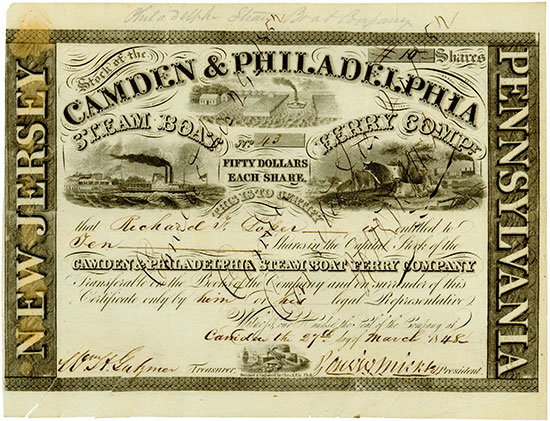 Philadelphia Steam Boat Company
Stock of the
# 10 Shares
CAMDEN & PHILADELPHIA
STEAM BOAT
FERRY COMPY
No. 13
FIFTY DOLLARS
EACH SHARE.
THIS IS TO CERTIFY
that Richard F. is entitled to
Ten Shares in the Capital Stock of the
CAMDEN & PHILADELPHIA STEAM BOAT FERRY COMPANY
Transferable on the Books of the Company and on surrender of this
Certificate only by him or his legal Representative
Witness our Hands & the Seal of the Company at
Camden the 27th day of March 1848
Treasurer.
President.
NEW JERSEY
PENNSYLVANIA